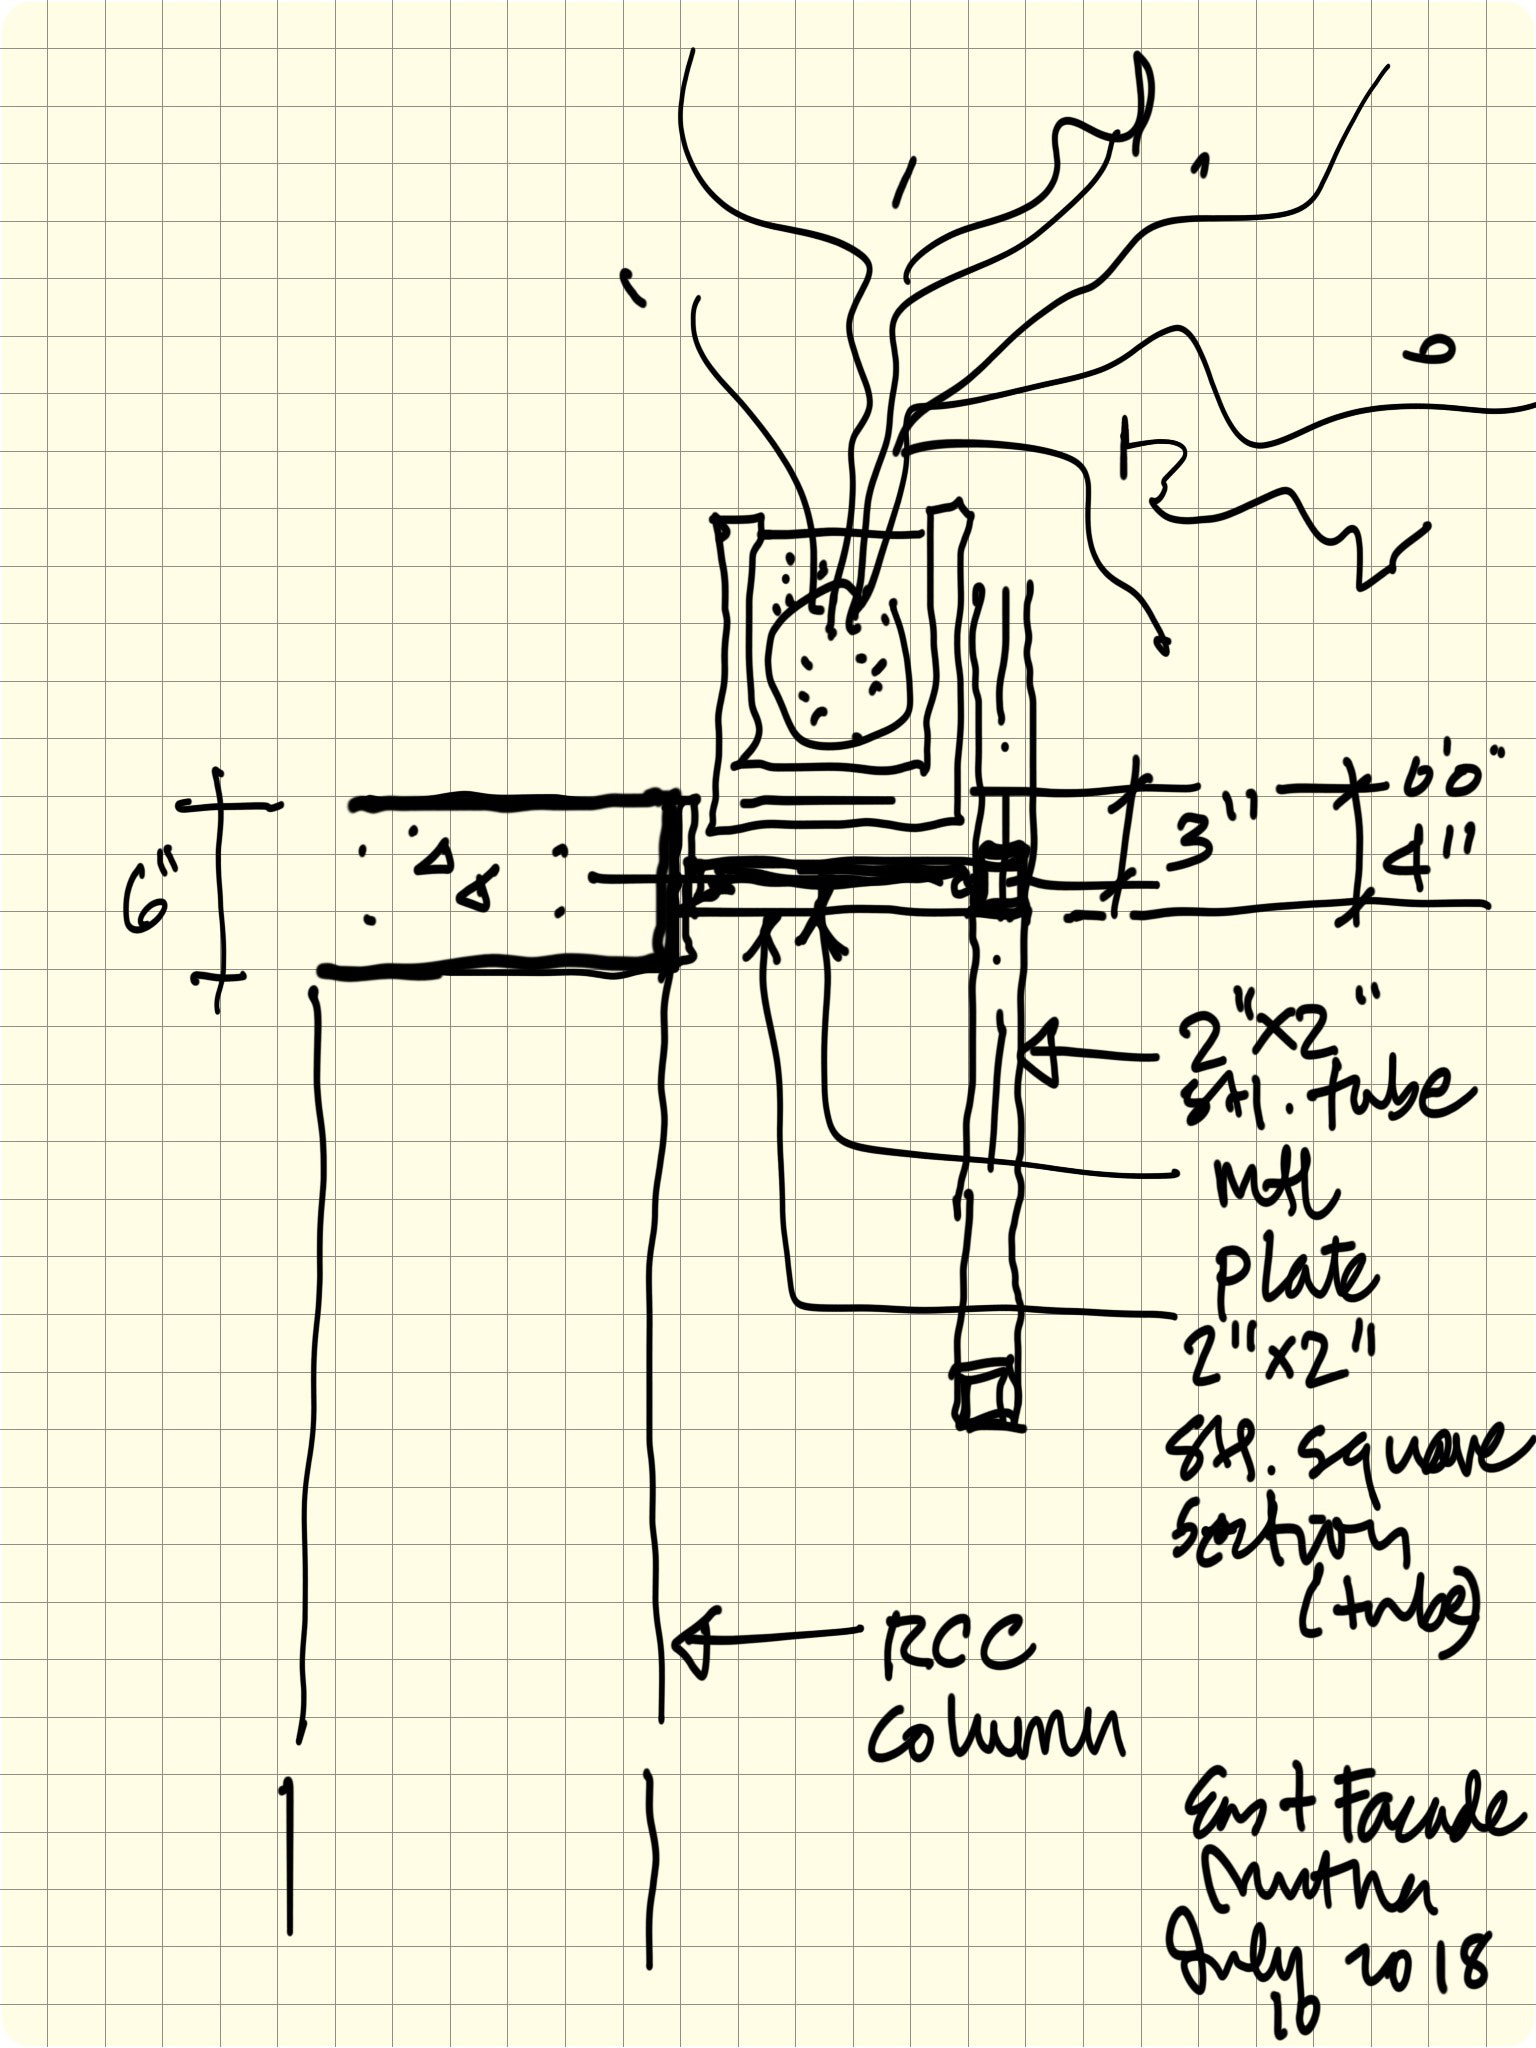 0'0"
3"
4"
6"
2"x2"
stl. tube
mtl
plate
2"x2"
stl. square
section
(tube)
RCC
column
East Facade
Mutha
July 2018
10